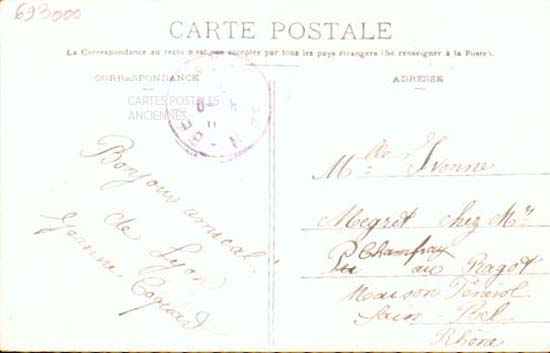 693000
CARTE POSTALE
La Correspondance au recto n'est pas acceptée par tous les pays étrangers (Se renseigner à la Poste).
CORRESPONDANCE
ADRESSE
CARTES POSTALES
ANCIENNES
Bonjour amical
de Lyon
Jeanne
Mlle Yvonne
Megret chez Mr
Champfray
au Ragot
Maison
Sain-Bel
Rhône